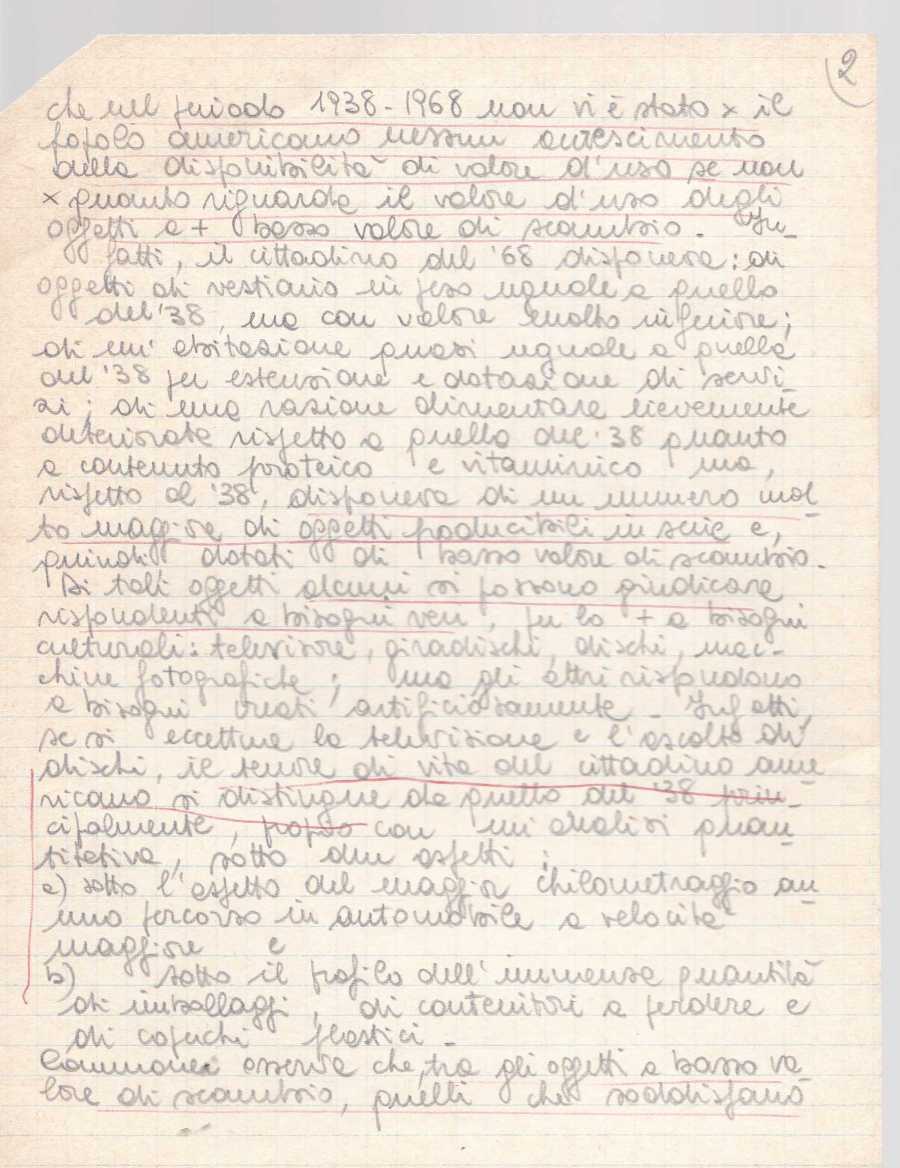 2
che nel periodo 1938-1968 non vi è stato x il
popolo americano nessun accrescimento
della disponibilità di valore d'uso se non
x quanto riguarda il valore d'uso degli
oggetti a + basso valore di scambio. In-
fatti, il cittadino del '68 disponeva: di
oggetti di vestiario in peso uguale a quello
del '38, ma con valore molto inferiore;
di un' abitazione quasi uguale a quella
del '38 per estensione e dotazione di servi-
zi; di una razione alimentare lievemente
deteriorata rispetto a quella del '38 quanto
a contenuto proteico e vitaminico ma,
rispetto al '38, disponeva di un numero mol-
to maggiore di oggetti producibili in serie e,
quindi dotati di basso valore di scambio.
Di tali oggetti alcuni si possono giudicare
rispondenti a bisogni veri, per lo + a bisogni
culturali: televisore, giradischi, dischi, mac-
chine fotografiche; ma gli altri rispondono
a bisogni creati artificiosamente. Infatti,
se si eccettua la televisione e l'ascolto di
dischi, il tenore di vita del cittadino ame
ricano si distingue da quello del '38 prin-
cipalmente, proprio con un'analisi quan-
titativa, sotto due aspetti:
a) sotto l'aspetto del maggior chilometraggio an
nuo percorso in automobile a velocità
maggiore e
b) sotto il profilo dell'immensa quantità
di imballaggi, di contenitori a perdere e
di coperchi plastici.
Commoner osserva che, tra gli oggetti a basso va
lore di scambio, quelli che soddisfano